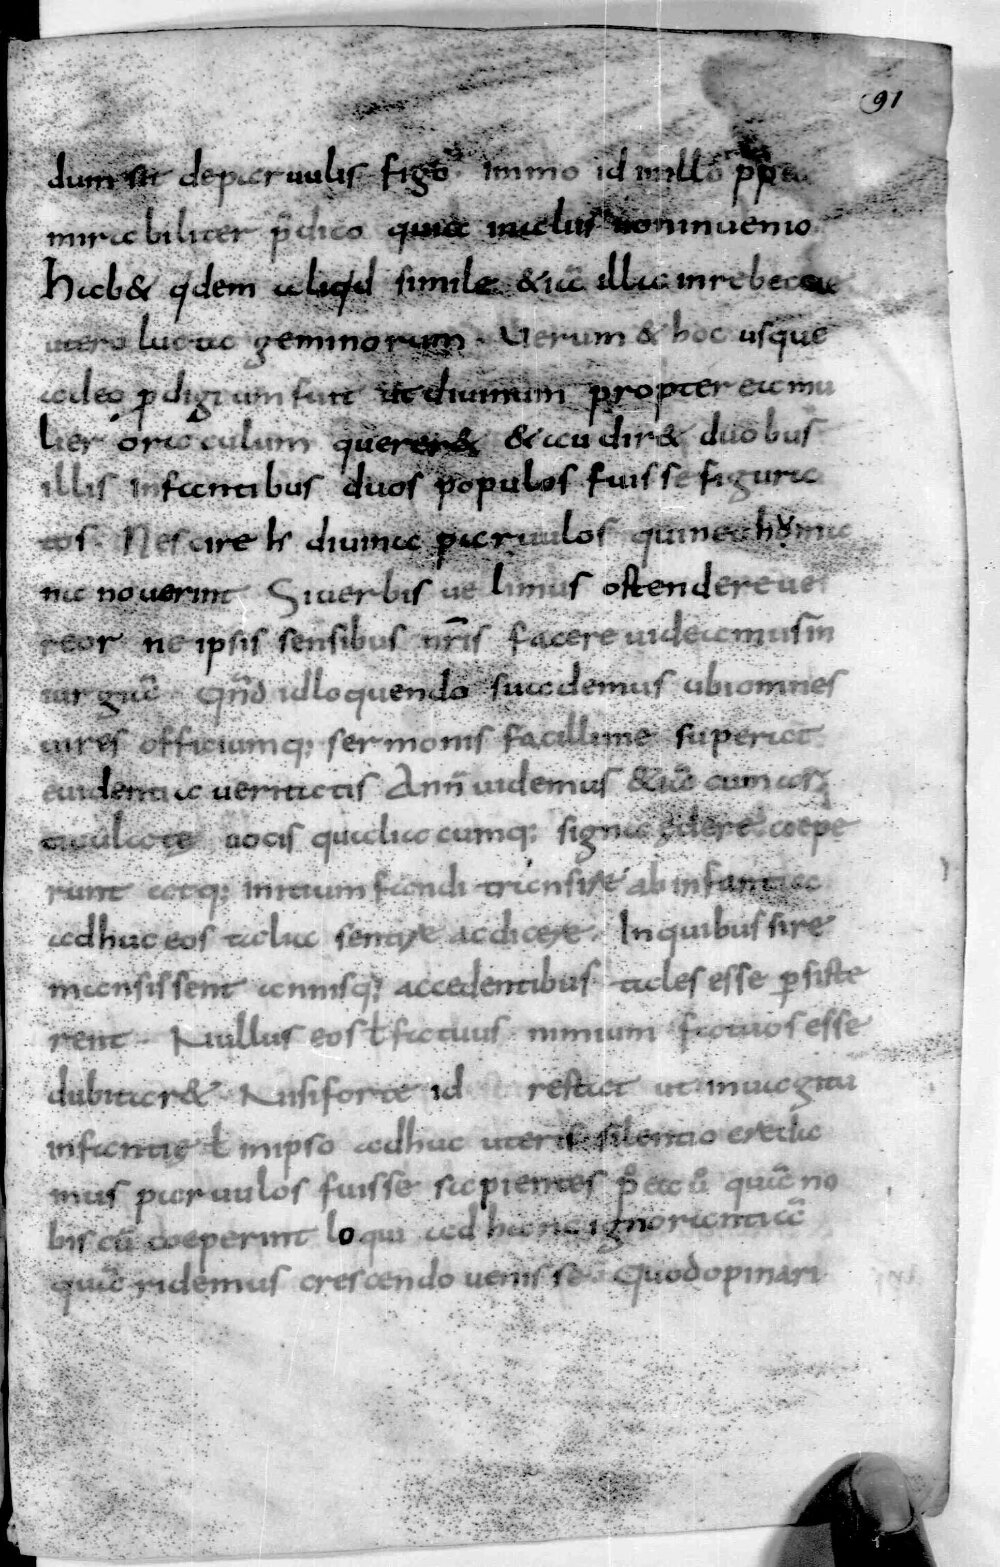 91
dum sit de paruulis fig̅ immo id in illo p̄p̄ea
mirabiliter p̄dico quia in aliis non inuenio
Hab& q'dem aliq'd simile &iā illa in rebeccae
utero luctac geminorum. Uerum & hoc usque
adeo p̄digium fuit ut diuinum propter ea mu
lier oraculum quерer& & audir& duobus
illis infantibus duos populos fuisse figura
tos. Nescire h̅ diuina paruulos qui nec humа
na nouerint Si uerbis uelimus ostendere ue
reor ne ipsis sensibus nr̄is facere uideamus in
iurgiū Qn̄do id loquendo suademus ubi omnes
uires officiumq; sermonis facillime superat
euidentia ueritatis Ann̄ uidemus &iā cum
uocis qualiacumq; signa edere coepe
runt atq; initium fandi transire ab infantia
adhuc eos talia sentire ac dicere. In quibus si re
mansissent annisq; accedentibus tales esse p̄siste
rent. Nullus eos ł fatuus nimium fatuos esse
dubitar& Nisi forte id restat ut in uagitu
infantię ł in ipso adhuc uteri silentio creda
mus paruulos fuisse sapientes p̊ ea ů quā no
biscū coeperint loqui ad hanc ignorantiā
quā ridemus crescendo uenisse Quod opinari